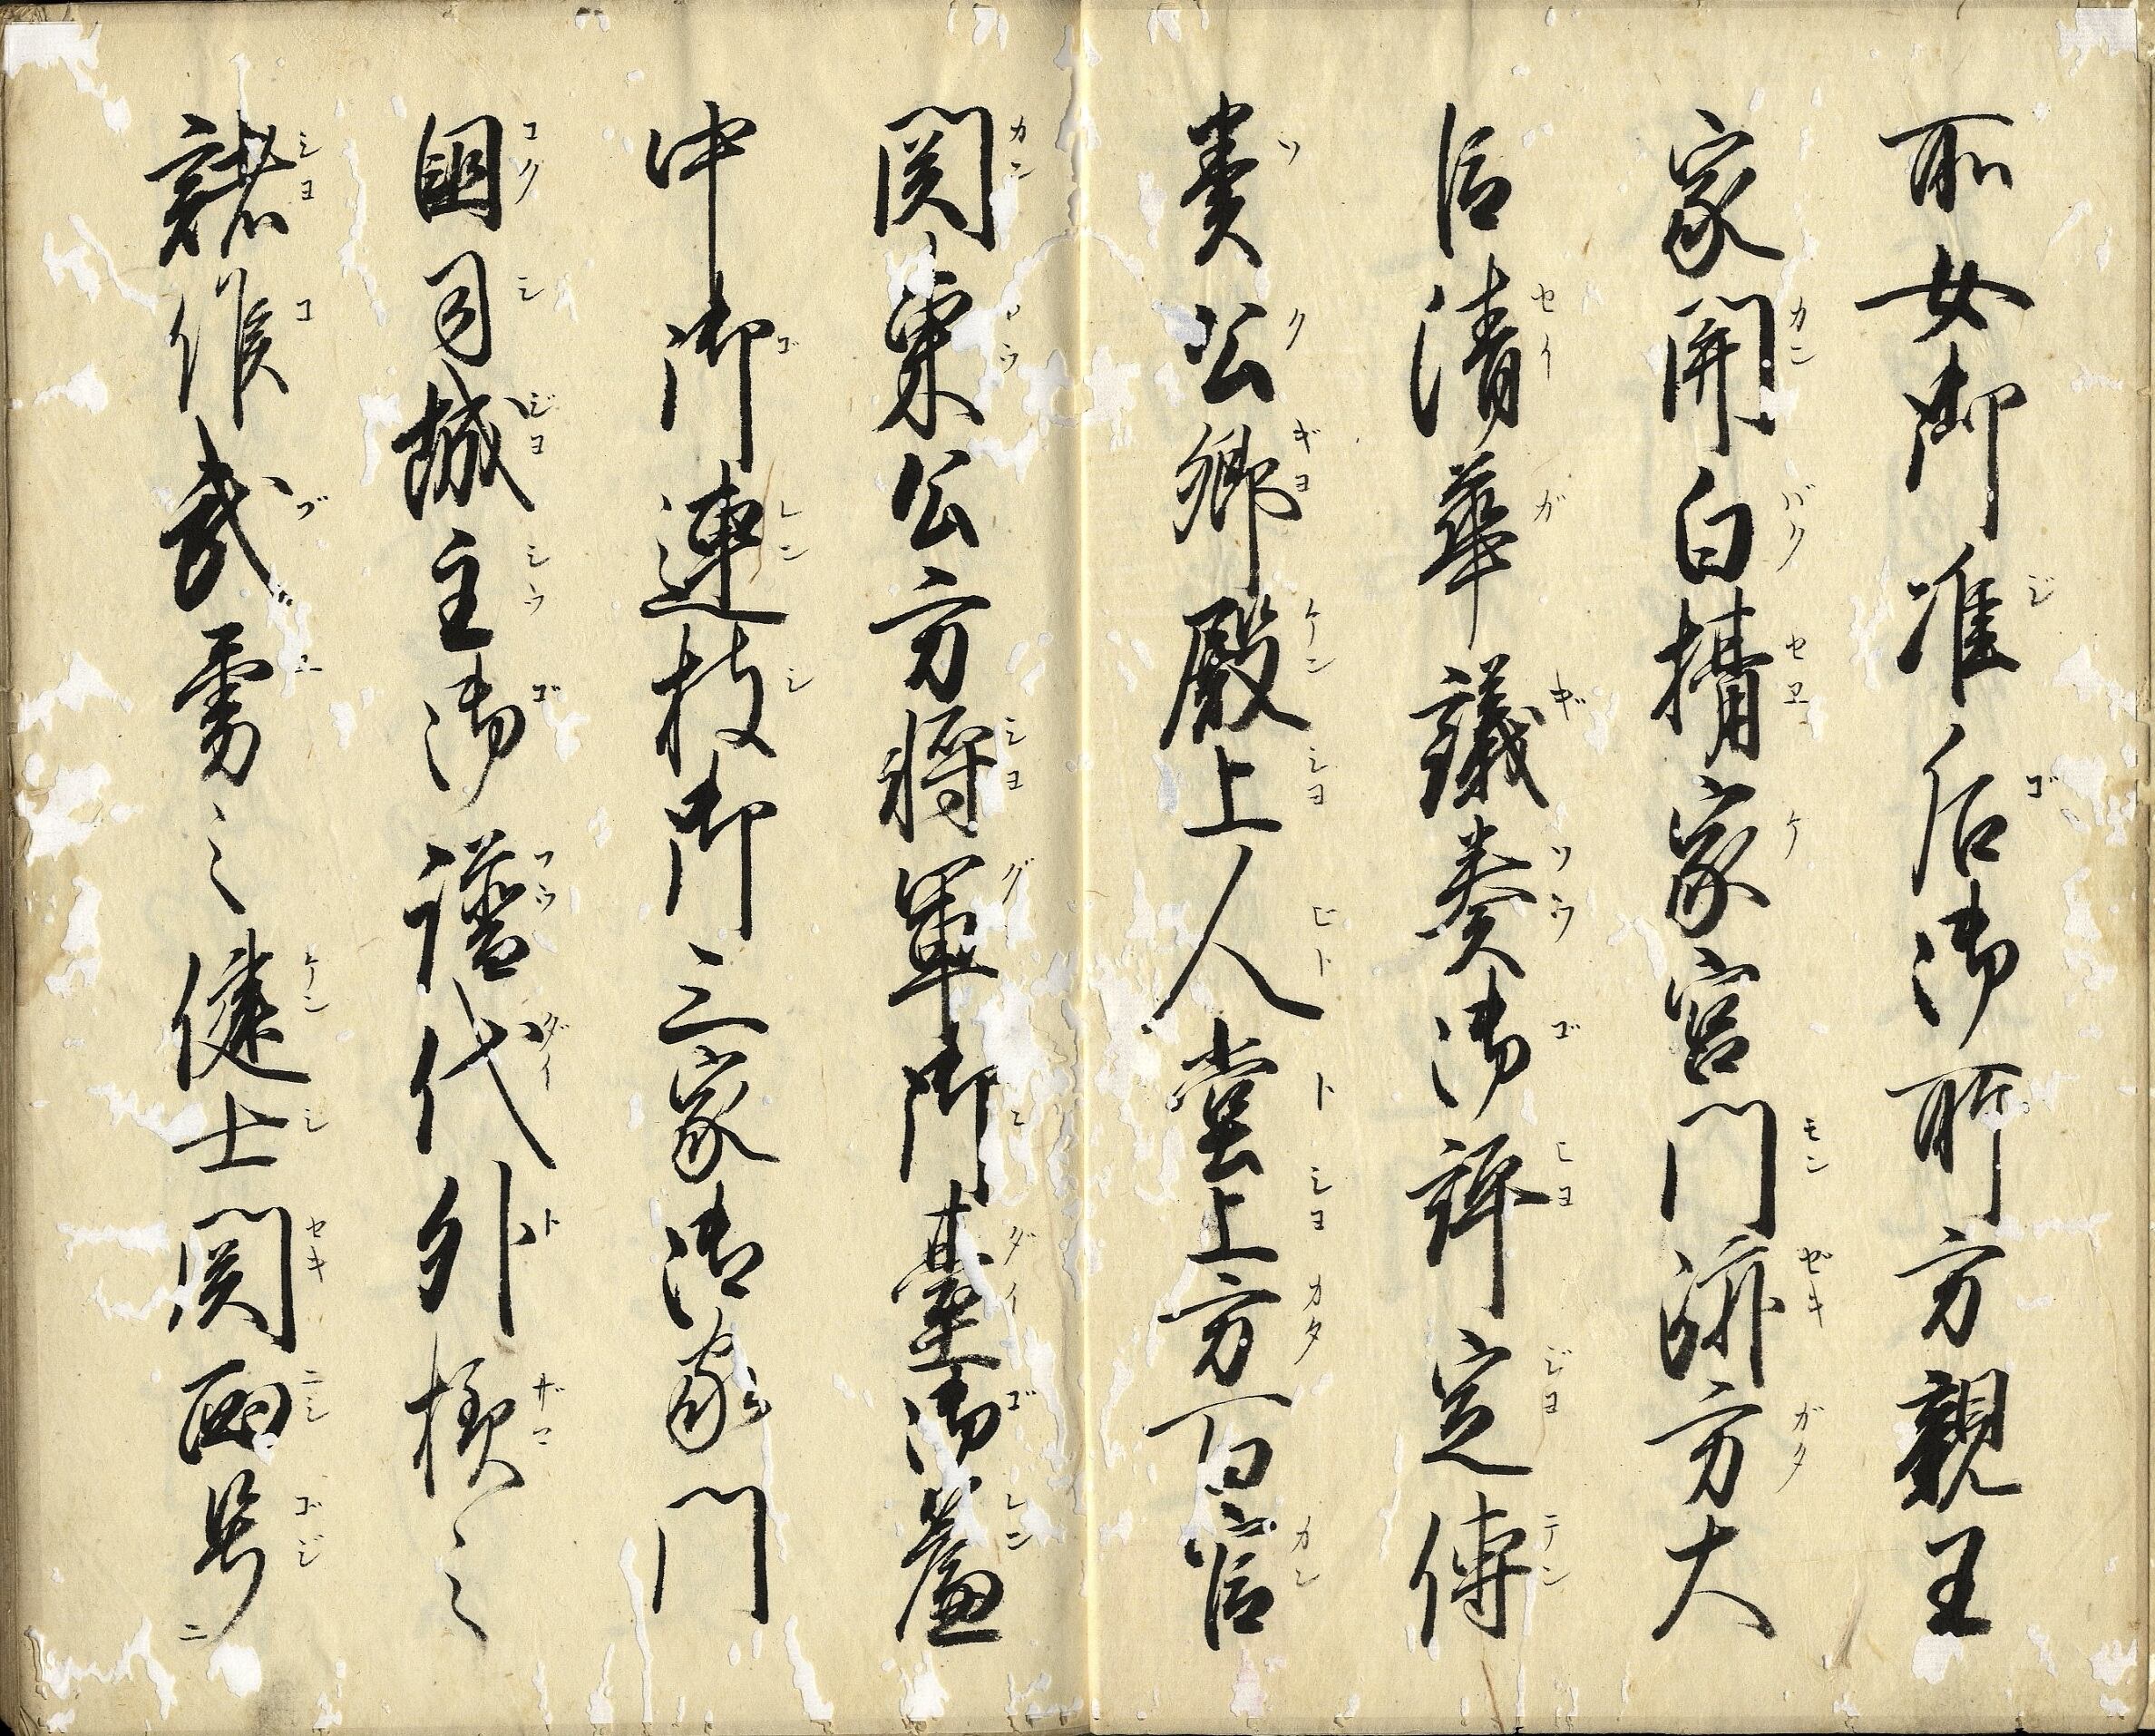 所女御准后御所方親王
家関白摂家宮門跡方大
臣清華議奏御評定伝
奏公卿殿上人堂上方百官
関東公方将軍御臺御簾
中御連枝御三家御家門
国司城主御譜代外様之
諸侯武勇之健士関西号